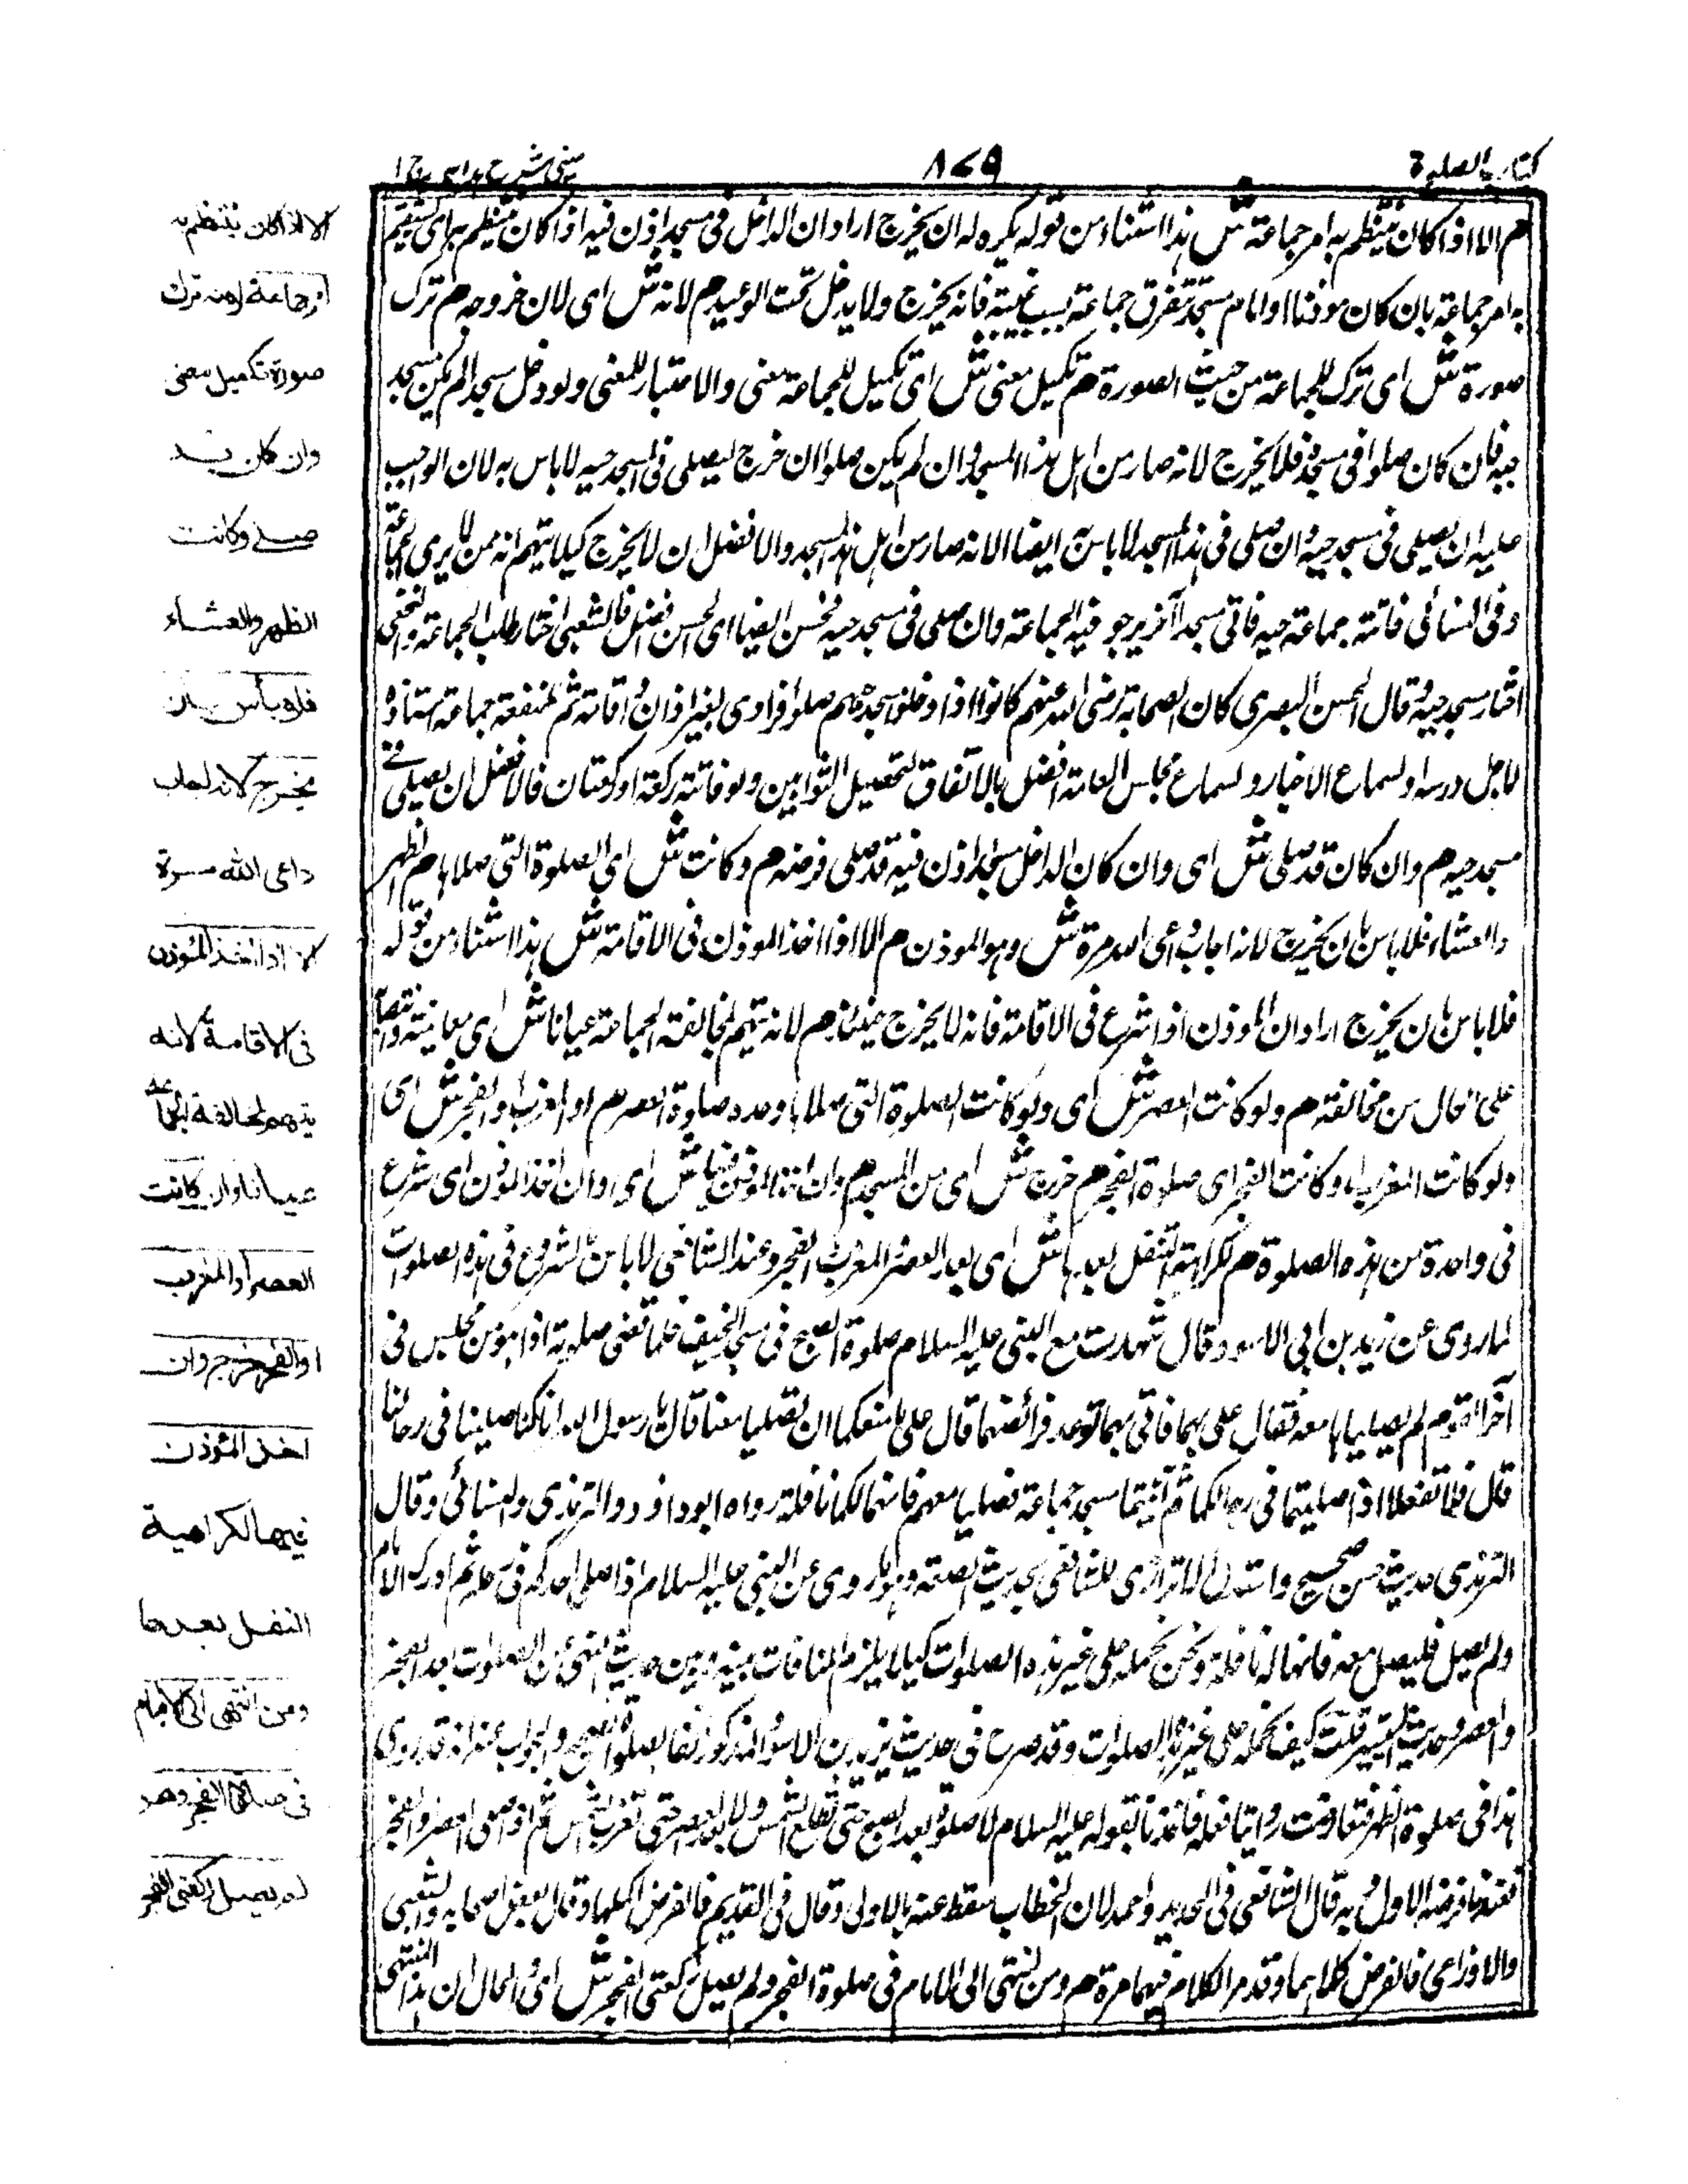 كتاب الصلوة
٨٧٩
عينى شرح هدايه ج ١
م الا اذا كان ينتظم به امر جماعة ش هذا استثناء من قوله يكره له ان يخرج اراد ان الداخل فى مسجد اذن فيه اذا كان ينتظم به اى يستقيم
به امر جماعة بان كان موذنا او امام مسجد تتفرق جماعة بسبب غيبته فانه يخرج ولا يدخل تحت الوعيد م لانه ش اى لان خروجه م ترك
صورة ش اى ترك للجماعة من حيث الصورة م تكميل معنى ش اى تكميل للجماعة معنى والاعتبار للمعنى ولو دخل مسجدا لم يكن مسجد
حيه فان كان صلوا فى مسجده فلا يخرج لانه صار من اهل هذا المسجد وان لم يكن صلوا ان خرج ليصلى فى المسجد حيه لا باس به لان الواجب
عليه ان يصلى فى مسجد حيه وان صلى فى هذا المسجد لا باس به ايضا لانه صار من اهل هذا المسجد والافضل ان لا يخرج كيلا يتهم انه ممن لا يرى الجماعة
وفى النسائى فاتته جماعة حيه فاتى مسجدا آخر يرجو فيه الجماعة وان صلى فى مسجد حيه فحسن ايضا اى الحسن افضل فالشعبى اختار طلب الجماعة والنخعى
اختار مسجد حيه وقال الحسن البصرى كان الصحابة رضى الله عنهم كانوا اذا دخلوا مسجدهم صلوا فرادى بغير اذان واقامة ثم لمنفعة جماعة استاذه
لاجل درسه او لسماع الاخبار ولسماع مجالس العامة افضل بالاتفاق لتحصيل الثوابين ولو فاتته ركعة او ركعتان فالافضل ان يصلى فى
مسجد حيه م وان كان قد صلى ش اى وان كان الداخل مسجدا اذن فيه قد صلى فرضه م وكانت ش اى الصلوة التى صلاها م الظهر
والعشاء فلا باس بان يخرج لانه اجاب داعى الله مرة ش وهو الموذن م الا اذا اخذ الموذن فى الاقامة ش هذا استثناء من قوله
فلا باس بان يخرج اراد ان الموذن اذا شرع فى الاقامة فانه لا يخرج حينئذ م لانه يتهم لمخالفة الجماعة عيانا ش اى معاينة وانتصابه
على الحال من مخالفته م ولو كانت العصر ش اى ولو كانت الصلوة التى صلاها وحده صلوة العصر م او المغرب او الفجر ش اى
ولو كانت المغرب او كانت الفجر اى صلوة الفجر م خرج ش اى من المسجد م وان اخذ الموذن فيها ش اى وان اخذ الموذن اى شرع
فى واحدة من هذه الصلوة م لكراهية التنفل بعدها ش اى بعد العصر والمغرب والفجر وعند الشافعى لا باس بالشروع فى هذه الصلوات
لما روى عن زيد بن ابى الاسود قال شهدت مع النبى عليه السلام صلوة الصبح فى مسجد الخيف فلما قضى صلوته اذا هو من مجلس فى
آخر القوم لم يصليا معه فقال على بهما فاتى بهما ترعد فرائصهما قال على ما منعكما ان تصليا معنا قال يا رسول الله انا كنا صلينا فى رحالنا
قال فلا تفعلا اذا صليتما فى رحالكما ثم اتيتما مسجد جماعة فصليا معهم فانهما لكما نافلة رواه ابو داود والترمذى والنسائى وقال
الترمذى حديث حسن صحيح واستدل الاترازى للشافعى بحديث الصفة وهو ما روى عن النبى عليه السلام اذا صلى احدكم فى رحله ثم ادرك الامام
ولم يصل فليصل معه فانها له نافلة ونحن نحمله على غير هذه الصلوات كيلا يلزم المنافات بينه وبين حديث النهى عن الصلوات بعد الفجر
والعصر وحديث قلت كيف نحمله على غير هذه الصلوات وقد صرح فى حديث يزيد بن الاسود المذكور آنفا بصلوة الصبح والجواب عنه انه قد روى
هذا فى صلوة الظهر فتعارضت روايتا فعله فاخذنا بقوله عليه السلام لا صلوة بعد الصبح حتى تطلع الشمس ولا بعد العصر حتى تغرب الشمس ثم اذا صلى العصر والفجر
فعندنا فرضه الاول وبه قال الشافعى فى الجديد واحمد لان الخطاب سقط عنه بالاولى وقال فى القديم فالفرض اكملها وقال بعض اصحابه والشعبى
والاوزاعى فالفرض كلاهما وقد مر الكلام فيهما مرة م ومن انتهى الى الامام فى صلوة الفجر ولم يصل ركعتى الفجر ش اى والحال ان هذا المنتهى
الا اذا كان ينتظم به
امر جماعة لانه ترك
صورة تكميل معنى
وان كان قد
صلى وكانت
الظهر والعشاء
فلا بأس بان
يخرج لانه اجاب
داعى الله مرة
الا اذا اخذ المؤذن
فى الاقامة لانه
يتهم لمخالفة الجماعة
عيانا وان كانت
العصر او المغرب
او الفجر خرج وان
اخذ المؤذن
فيها لكراهية
النفل بعدها
ومن انتهى الى الامام
فى صلاة الفجر وهو
لم يصل ركعتى الفجر